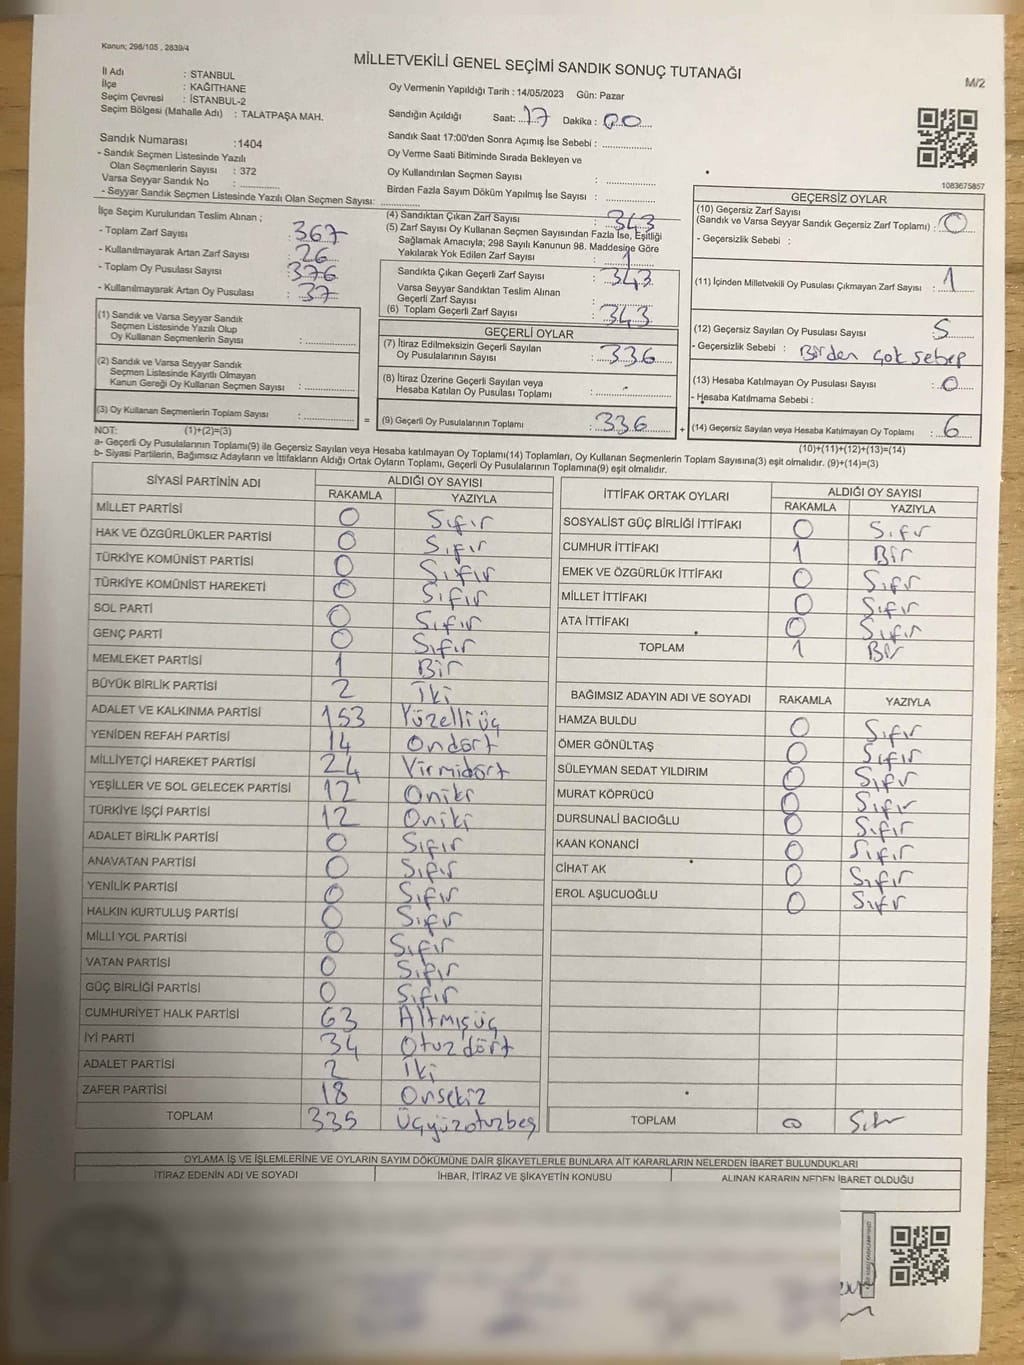 Kanun; 298/105 , 2839/4
MİLLETVEKİLİ GENEL SEÇİMİ SANDIK SONUÇ TUTANAĞI
M/2
İl Adı : STANBUL
İlçe : KAĞITHANE
Seçim Çevresi : İSTANBUL-2
Seçim Bölgesi (Mahalle Adı) : TALATPAŞA MAH.
Sandık Numarası :1404
- Sandık Seçmen Listesinde Yazılı
Olan Seçmenlerin Sayısı : 372
Varsa Seyyar Sandık No : ..............
- Seyyar Sandık Seçmen Listesinde Yazılı Olan Seçmen Sayısı: ..............
Oy Vermenin Yapıldığı Tarih : 14/05/2023 Gün: Pazar
Sandığın Açıldığı Saat: 17 Dakika : 00
Sandık Saat 17:00'den Sonra Açımış İse Sebebi : ..............
Oy Verme Saati Bitiminde Sırada Bekleyen ve
Oy Kullandırılan Seçmen Sayısı : ..............
Birden Fazla Sayım Döküm Yapılmış İse Sayısı : ..............
1083675857
İlçe Seçim Kurulundan Teslim Alınan ;
- Toplam Zarf Sayısı : 367
- Kullanılmayarak Artan Zarf Sayısı : 26
- Toplam Oy Pusulası Sayısı : 376
- Kullanılmayarak Artan Oy Pusulası : 37
(1) Sandık ve Varsa Seyyar Sandık
Seçmen Listesinde Yazılı Olup
Oy Kullanan Seçmenlerin Sayısı : ..............
(2) Sandık ve Varsa Seyyar Sandık
Seçmen Listesinde Kayıtlı Olmayan
Kanun Gereği Oy Kullanan Seçmen Sayısı : ..............
(3) Oy Kullanan Seçmenlerin Toplam Sayısı : ..............
(4) Sandıktan Çıkan Zarf Sayısı : 343
(5) Zarf Sayısı Oy Kullanan Seçmen Sayısından Fazla İse, Eşitliği
Sağlamak Amacıyla; 298 Sayılı Kanunun 98. Maddesine Göre
Yakılarak Yok Edilen Zarf Sayısı :
Sandıkta Çıkan Geçerli Zarf Sayısı : 343
Varsa Seyyar Sandıktan Teslim Alınan
Geçerli Zarf Sayısı :
(6) Toplam Geçerli Zarf Sayısı : 343
GEÇERLİ OYLAR
(7) İtiraz Edilmeksizin Geçerli Sayılan
Oy Pusulalarının Sayısı : 336
(8) İtiraz Üzerine Geçerli Sayılan veya
Hesaba Katılan Oy Pusulası Toplamı : ..............
= (9) Geçerli Oy Pusulalarının Toplamı : 336 +
GEÇERSİZ OYLAR
(10) Geçersiz Zarf Sayısı
(Sandık ve Varsa Seyyar Sandık Geçersiz Zarf Toplamı) : 0
- Geçersizlik Sebebi :
(11) İçinden Milletvekili Oy Pusulası Çıkmayan Zarf Sayısı : 1
(12) Geçersiz Sayılan Oy Pusulası Sayısı 5
- Geçersizlik Sebebi : Birden çok sebep
(13) Hesaba Katılmayan Oy Pusulası Sayısı : 0
- Hesaba Katılmama Sebebi :
(14) Geçersiz Sayılan veya Hesaba Katılmayan Oy Toplamı : 6
NOT: (1)+(2)=(3)
(10)+(11)+(12)+(13)=(14)
a- Geçerli Oy Pusulalarının Toplamı(9) ile Geçersiz Sayılan veya Hesaba katılmayan Oy Toplamı(14) Toplamları, Oy Kullanan Seçmenlerin Toplam Sayısına(3) eşit olmalıdır. (9)+(14)=(3)
b- Siyasi Partilerin, Bağımsız Adayların ve İttifakların Aldığı Ortak Oyların Toplamı, Geçerli Oy Pusulalarının Toplamına(9) eşit olmalıdır.
SİYASİ PARTİNİN ADI ALDIĞI OY SAYISI
RAKAMLA YAZIYLA
MİLLET PARTİSİ 0 Sıfır
HAK VE ÖZGÜRLÜKLER PARTİSİ 0 Sıfır
TÜRKİYE KOMÜNİST PARTİSİ 0 Sıfır
TÜRKİYE KOMÜNİST HAREKETİ 0 Sıfır
SOL PARTİ 0 Sıfır
GENÇ PARTİ 0 Sıfır
MEMLEKET PARTİSİ 1 Bir
BÜYÜK BİRLİK PARTİSİ 2 İki
ADALET VE KALKINMA PARTİSİ 153 Yüzelliüç
YENİDEN REFAH PARTİSİ 14 Ondört
MİLLİYETÇİ HAREKET PARTİSİ 24 Yirmidört
YEŞİLLER VE SOL GELECEK PARTİSİ 12 Oniki
TÜRKİYE İŞÇİ PARTİSİ 12 Oniki
ADALET BİRLİK PARTİSİ 0 Sıfır
ANAVATAN PARTİSİ 0 Sıfır
YENİLİK PARTİSİ 0 Sıfır
HALKIN KURTULUŞ PARTİSİ 0 Sıfır
MİLLİ YOL PARTİSİ 0 Sıfır
VATAN PARTİSİ 0 Sıfır
GÜÇ BİRLİĞİ PARTİSİ 0 Sıfır
CUMHURİYET HALK PARTİSİ 63 Altmışüç
İYİ PARTİ 34 Otuzdört
ADALET PARTİSİ 2 İki
ZAFER PARTİSİ 18 Onsekiz
TOPLAM 335 Üçyüzotuzbeş
İTTİFAK ORTAK OYLARI ALDIĞI OY SAYISI
RAKAMLA YAZIYLA
SOSYALİST GÜÇ BİRLİĞİ İTTİFAKI 0 Sıfır
CUMHUR İTTİFAKI 1 Bir
EMEK VE ÖZGÜRLÜK İTTİFAKI 0 Sıfır
MİLLET İTTİFAKI 0 Sıfır
ATA İTTİFAKI 0 Sıfır
TOPLAM 1 Bir
BAĞIMSIZ ADAYIN ADI VE SOYADI RAKAMLA YAZIYLA
HAMZA BULDU 0 Sıfır
ÖMER GÖNÜLTAŞ 0 Sıfır
SÜLEYMAN SEDAT YILDIRIM 0 Sıfır
MURAT KÖPRÜCÜ 0 Sıfır
DURSUNALİ BACIOĞLU 0 Sıfır
KAAN KONANCİ 0 Sıfır
CİHAT AK 0 Sıfır
EROL AŞUCUOĞLU 0 Sıfır
TOPLAM 0 Sıfır
OYLAMA İŞ VE İŞLEMLERİNE VE OYLARIN SAYIM DÖKÜMÜNE DAİR ŞİKAYETLERLE BUNLARA AİT KARARLARIN NELERDEN İBARET BULUNDUKLARI
İTİRAZ EDENİN ADI VE SOYADI İHBAR, İTİRAZ VE ŞİKAYETİN KONUSU ALINAN KARARIN NEDEN İBARET OLDUĞU